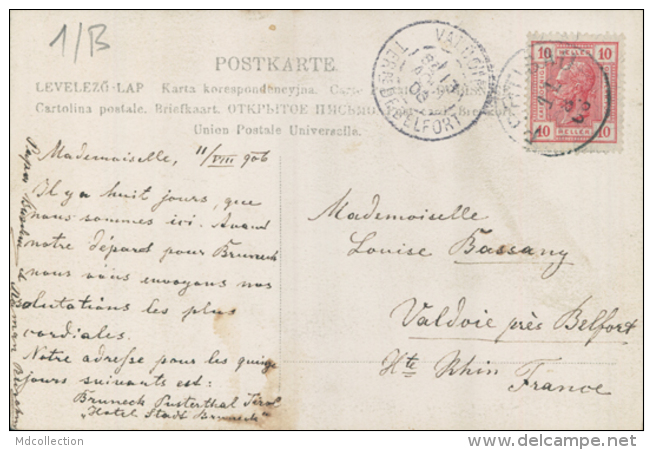 1/B
POSTKARTE.
LEVELEZŐ-LAP Karta korespondencyjna. Carte
Cartolina postale. Briefkaart. ОТКРЫТОЕ ПИСЬМО
Union Postale Universelle.
VALDOIE
BELFORT
10 10
HELLER
10 10
Mademoiselle, 11/VIII 906
Il y a huit jours, que
nous sommes ici. Avant
notre départ pour Bruneck
nous vous envoyons nos
salutations les plus
cordiales.
Notre adresse pour les quinze
jours suivants est:
Bruneck Pusterthal Tirol
„Hotel Stadt Bruneck"
Mademoiselle
Louise Bassang
Valdoie près Belfort
Hte Rhin
France
Mdcollection
www.delcampe.net